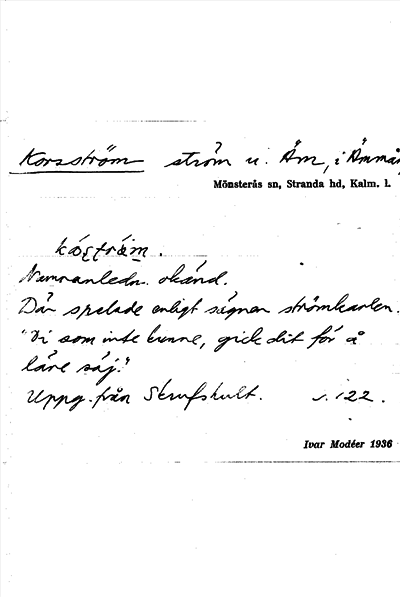 Korsström ström u. Äm, i Ämmån
Mönsterås sn, Stranda hd, Kalm. l.
Namnanledn. okänd.
Där spelade enligt sägnen strömkarlen.
"Di som inte kunne, gick dit för å
läre säj."
Uppg. från Skrufshult. s. 122.
Ivar Modéer 1936